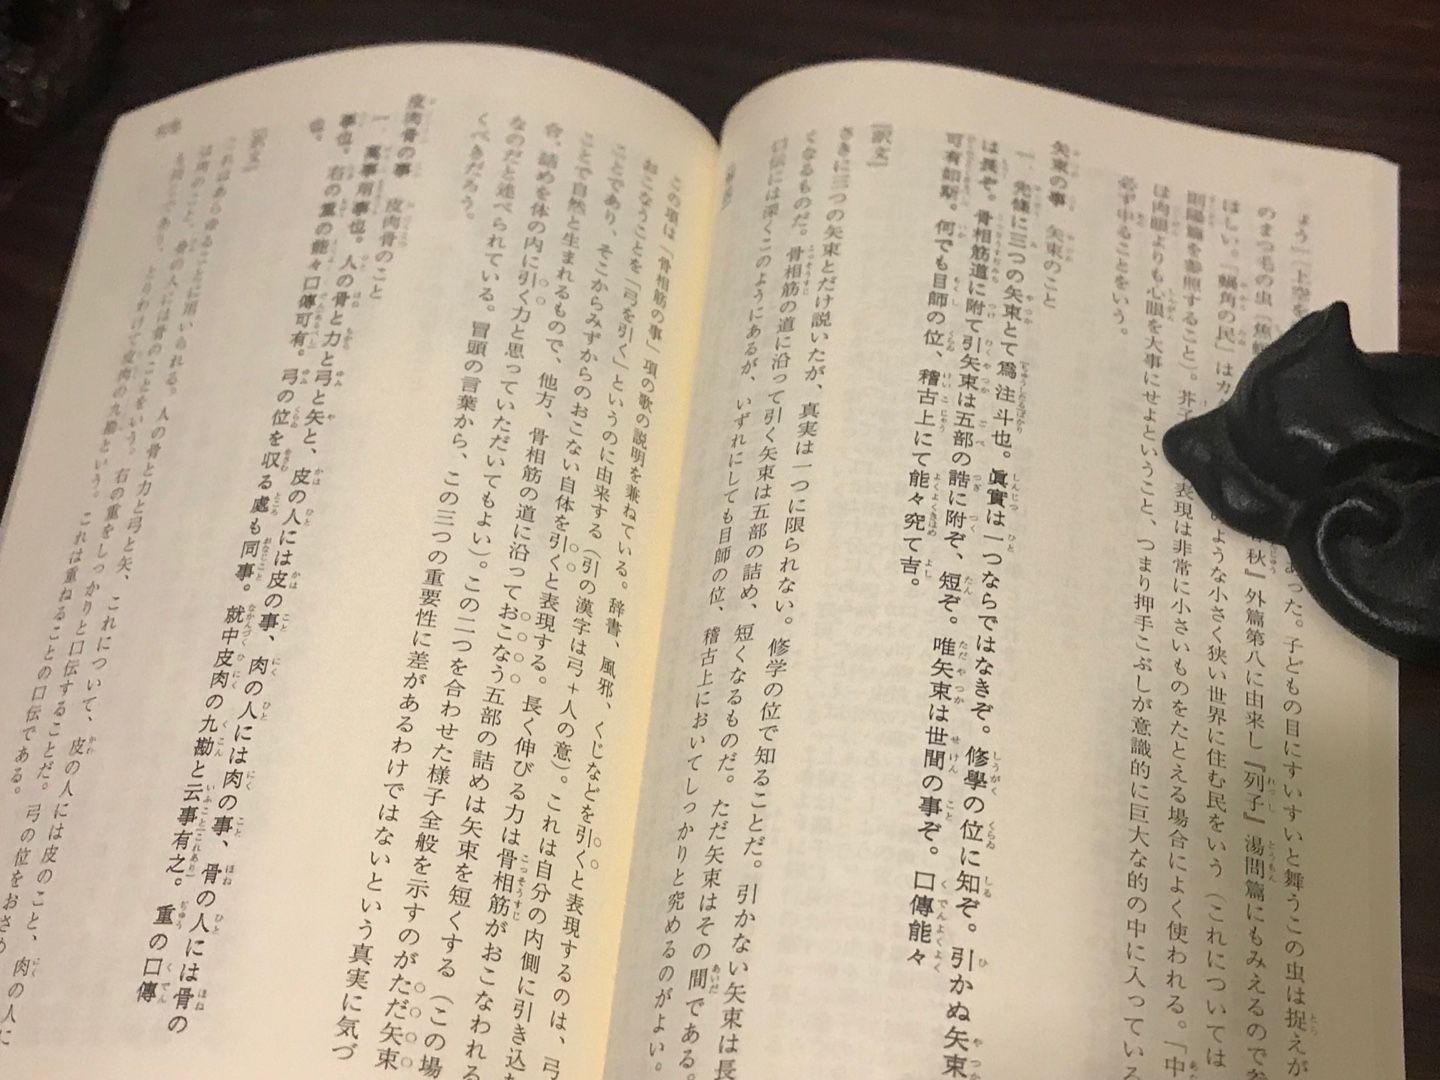 よう」(上空を
あった。子どもの目にすいすいと舞うこの虫は捉えが
のまつ毛の虫
秋』外篇第八に由来し『列子』湯問篇にもみえるので参
ほしい。「蝸角の民」はカ
のような小さく狭い世界に住む民をいう(これについては
則陽篇を参照すること)。芥子
表現は非常に小さいものをたとえる場合によく使われる。「中
は肉眼よりも心眼を大事にせよということ、つまり押手こぶしが意識的に巨大な的の中に入っている
必ず中ることをいう。
矢束の事 矢束のこと
一、先様に三つの矢束とて爲注斗也。眞實は一つならではなきぞ。修學の位に知ぞ。引かぬ矢束
は長ぞ。骨相筋道に附て引矢束は五部の誥に附ぞ、短ぞ。唯矢束は世間の事ぞ。口傳能々
可有如斯。何でも目師の位、稽古上にて能々究て吉。
[訳文]
さきに三つの矢束とだけ説いたが、真実は一つに限られない。修学の位で知ることだ。引かない矢束は長
くなるものだ。骨相筋の道に沿って引く矢束は五部の詰め、短くなるものだ。ただ矢束はその間である。
口伝には深くこのようにあるが、いずれにしても目師の位、稽古上においてしっかりと究めるのがよい。
この項は「骨相筋の事」項の歌の説明を兼ねている。辞書、風邪、くじなどを引くと表現するのは、弓
おこなうことを「弓を引く」というのに由来する(引の漢字は弓+人の意)。これは自分の内側に引き込む
ことであり、そこからみずからのおこない自体を引くと表現する。長く伸びる力は骨相筋がおこなわれる
ことで自然と生まれるもので、他方、骨相筋の道に沿っておこなう五部の詰めは矢束を短くする(この場
合、詰めを体の内に引く力と思っていただいてもよい)。この二つを合わせた様子全般を示すのがただ矢束
なのだと述べられている。冒頭の言葉から、この三つの重要性に差があるわけではないという真実に気づ
くべきだろう。
皮肉骨の事 皮肉骨のこと
一、萬事用事也。人の骨と力と弓と矢と、皮の人には皮の事、肉の人には肉の事、骨の人には骨の
事也。右の重の能々口傳可有。弓の位を収る處も同事。就中皮肉の九勘と云事有之。重の口傳
也。
[訳文]
これはあらゆることに用いられる。人の骨と力と弓と矢、これについて、皮の人には皮のこと、肉の人に
は肉のこと、骨の人には骨のことをいう。右の重をしっかりと口伝することだ。弓の位をおさめ
も同じであり、とりわけて皮肉の九勘という。これは重ねることの口伝である。